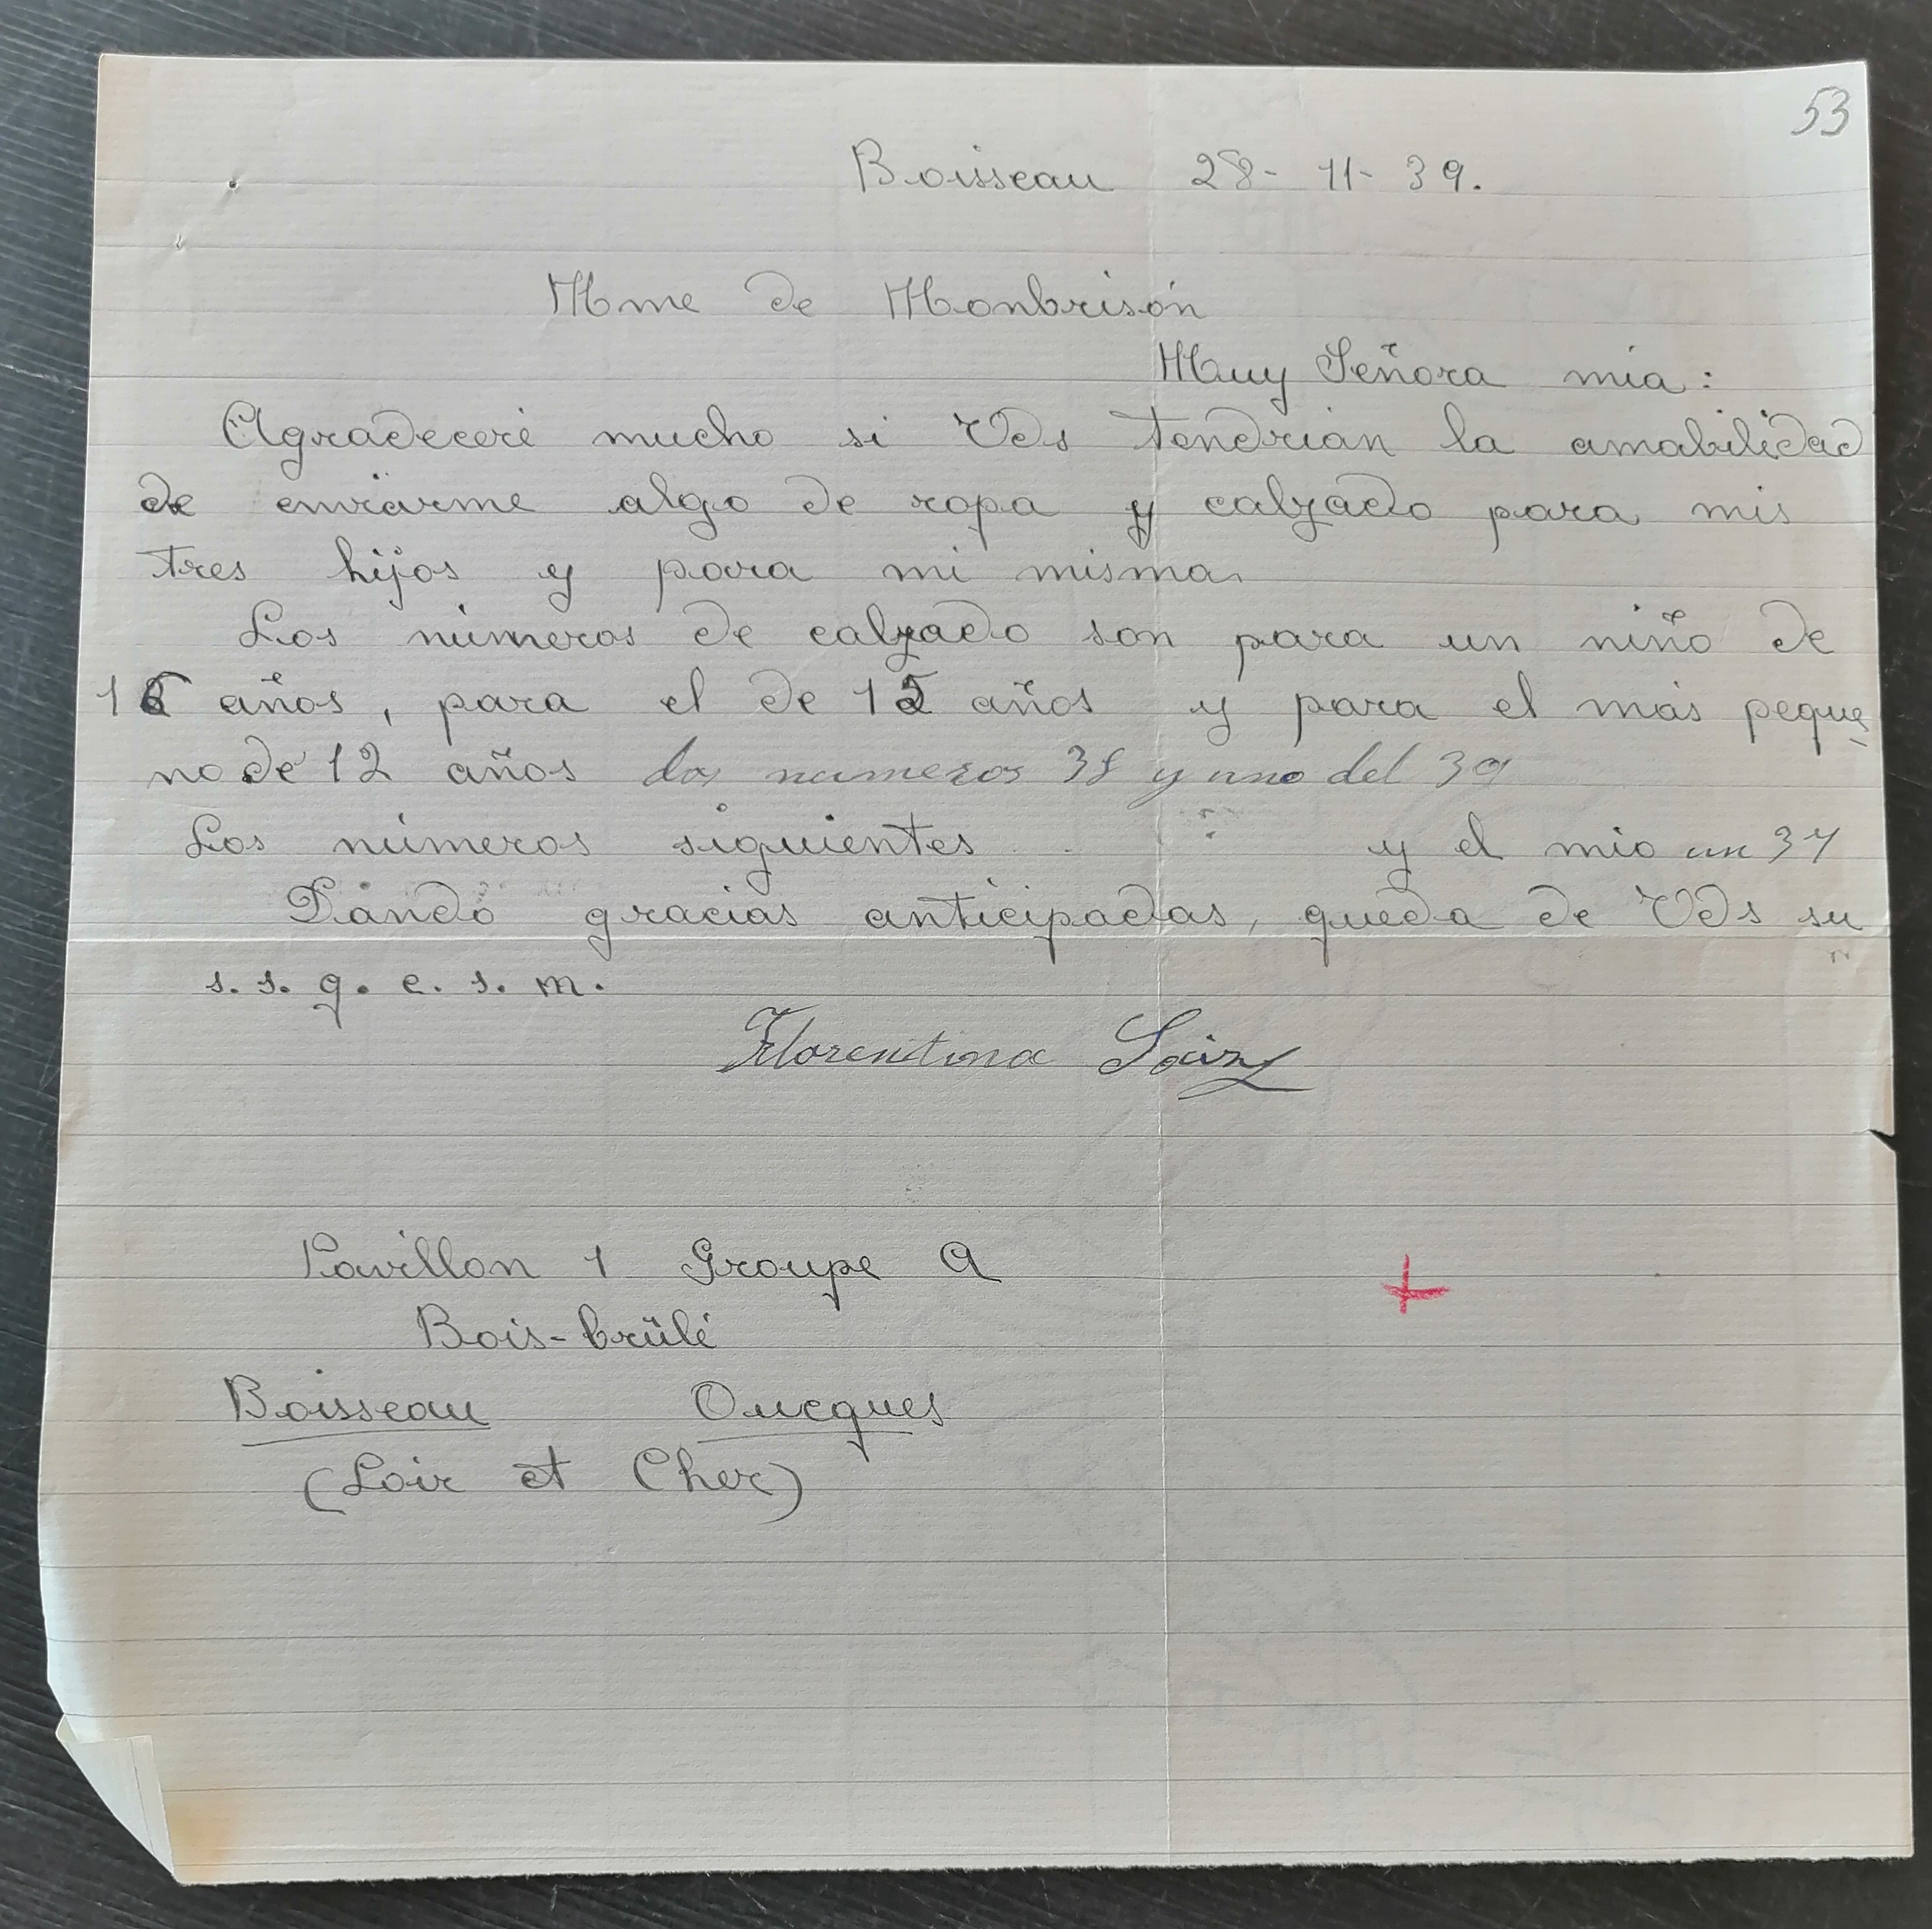 53
Boisseau 28- 11- 39.
Mme de Monbrisón
Muy Señora mia :
Agradeceré mucho si Vds tendrian la amabilidad
de enviarme algo de ropa y calzado para mis
tres hijos y para mi misma.
Los números de calzado son para un niño de
16 años, para el de 15 años y para el más peque
no de 12 años dos numeros 38 y uno del 39
Los números siguientes y el mio un 37
Dando gracias anticipadas, queda de Vds su
s. s. q. e. s. m.
Florentina Sainz
Pavillon 1 Groupe A
Bois-brûlé
Boisseau Oucques
(Loir et Cher)